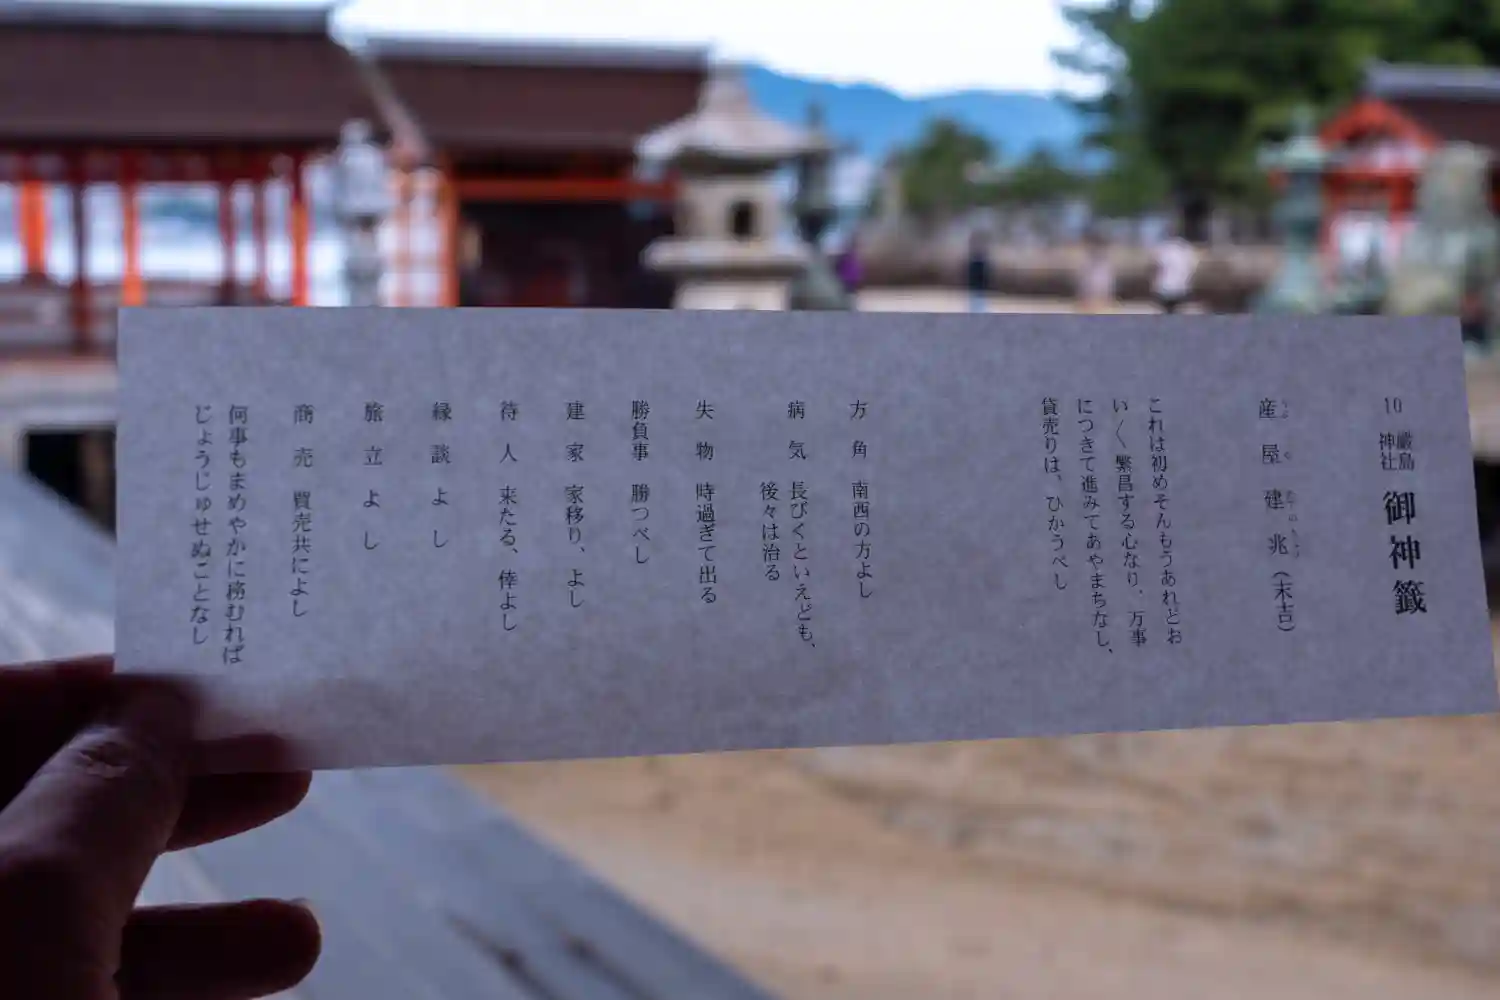 10 厳島神社 御神籤
産屋建兆（末吉）
これは初めそんもうあれどお
い〱繁昌する心なり、万事
につきて進みてあやまちなし、
貸売りは、ひかうべし
方角 南西の方よし
病気 長びくといえども、
後々は治る
失物 時過ぎて出る
勝負事 勝つべし
建家 家移り、よし
待人 来たる、倖よし
縁談 よし
旅立 よし
商売 買売共によし
何事もまめやかに務むれば
じょうじゅせぬことなし